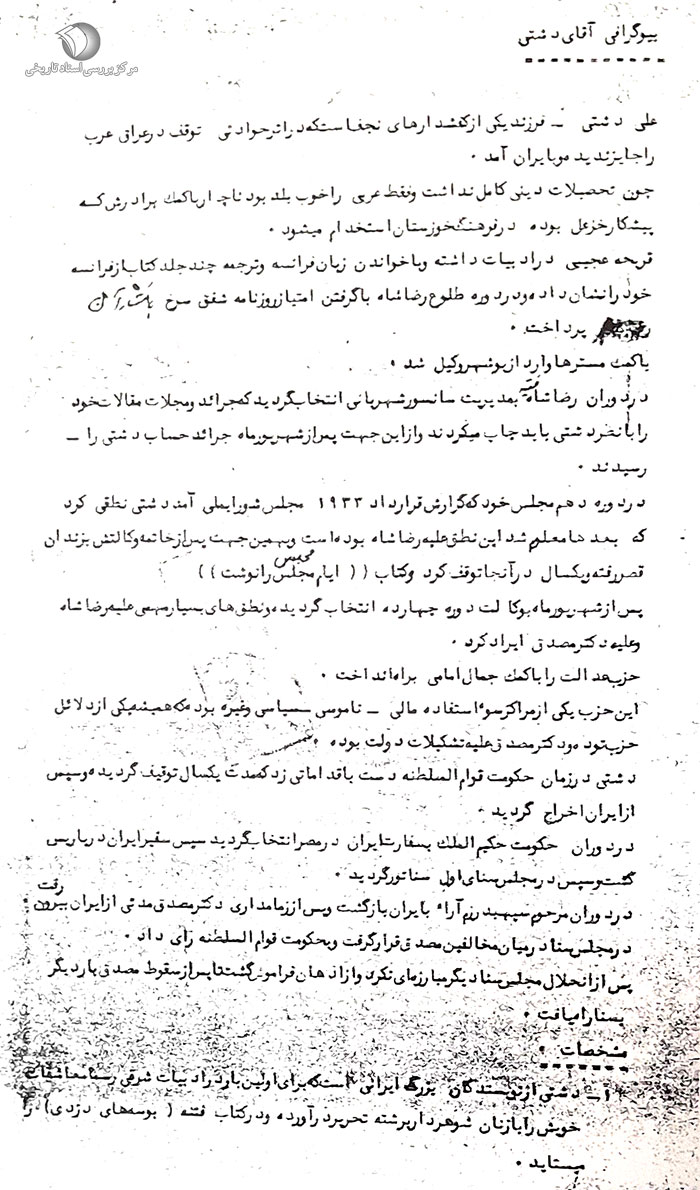 مرکز بررسی اسناد تاریخی
بیوگرافی آقای دشتی
علی دشتی – فرزند یکی از کفشدارهای نجف است که در اثر حوادثی توقف در عراق عرب
را جایز ندیده و بایران آمد .
چون تحصیلات دینی کامل نداشت و فقط عربی را خوب بلد بود ناچار با کمک برادرش که
پیشکار خزعل بوده در فرهنگ خوزستان استخدام میشود .
قریحه عجیبی در ادبیات داشته و با خواندن زبان فرانسه و ترجمه چند جلد کتاب از فرانسه
خود را نشان داده و در دوره طلوع رضا شاه با گرفتن امتیاز روزنامه شفق سرخ
پرداخت .
با کمک مسترها وارد از بوشهر وکیل شد .
در دوران رضا شاه بمدیریت سانسور شهربانی انتخاب گردید که جرائد و مجلات مقالات خود
را با نظر دشتی باید چاپ میکردند و از این جهت پس از شهریور ماه جرائد حساب دشتی را –
رسیدند .
در دوره دهم مجلس خود که گزارش قرارداد ۱۹۳۳ مجلس شورایملی آمد دشتی نطقی کرد
که بعدها معلوم شد این نطق علیه رضا شاه بوده است و بهمین جهت پس از خاتمه وکالتش بزندان
قصر رفته و یکسال در آنجا توقف کرد و کتاب (( ایام محبس را نوشت ))
پس از شهریور ماه بوکالت دوره چهارده انتخاب گردیده و نطق های بسیار مهمی علیه رضا شاه
و علیه دکتر مصدق ایراد کرد .
حزب عدالت را با کمک جمال امامی براه انداخت .
این حزب یکی از مراکز سوء استفاده مالی – ناموسی سیاسی و غیره بوده که همیشه یکی از دلائل
حزب توده و دکتر مصدق علیه تشکیلات دولت بوده .
دشتی در زمان حکومت قوام السلطنه دست باقداماتی زد که مدت یکسال توقیف گردیده و سپس
از ایران اخراج گردید .
در دوران حکومت حکیم الملک بسفارت ایران در مصر انتخاب گردید سپس سفیر ایران در پاریس
گشت و سپس در مجلس سنای اول سناتور گردید .
در دوران مرحوم سپهبد رزم آراء بایران بازگشت و پس از زمامداری دکتر مصدق مدتی از ایران بیرون رفت
در مجلس سنا در میان مخالفین مصدق قرار گرفت و بحکومت قوام السلطنه رای داد .
پس از انحلال مجلس سنا دیگر مبارزه‌ای نکرد و از اذهان فراموش گشت تا پس از سقوط مصدق بار دیگر
بسنا راه یافت .
مشخصات .
۱– دشتی از نویسندگان بزرگ ایرانی است که برای اولین بار در ادبیات شرقی رسما معاشقات
خویش را با زنان شوهردار برشته تحریر درآورده و در کتاب فتنه ( بوسه های دزدی) را
میستاید .